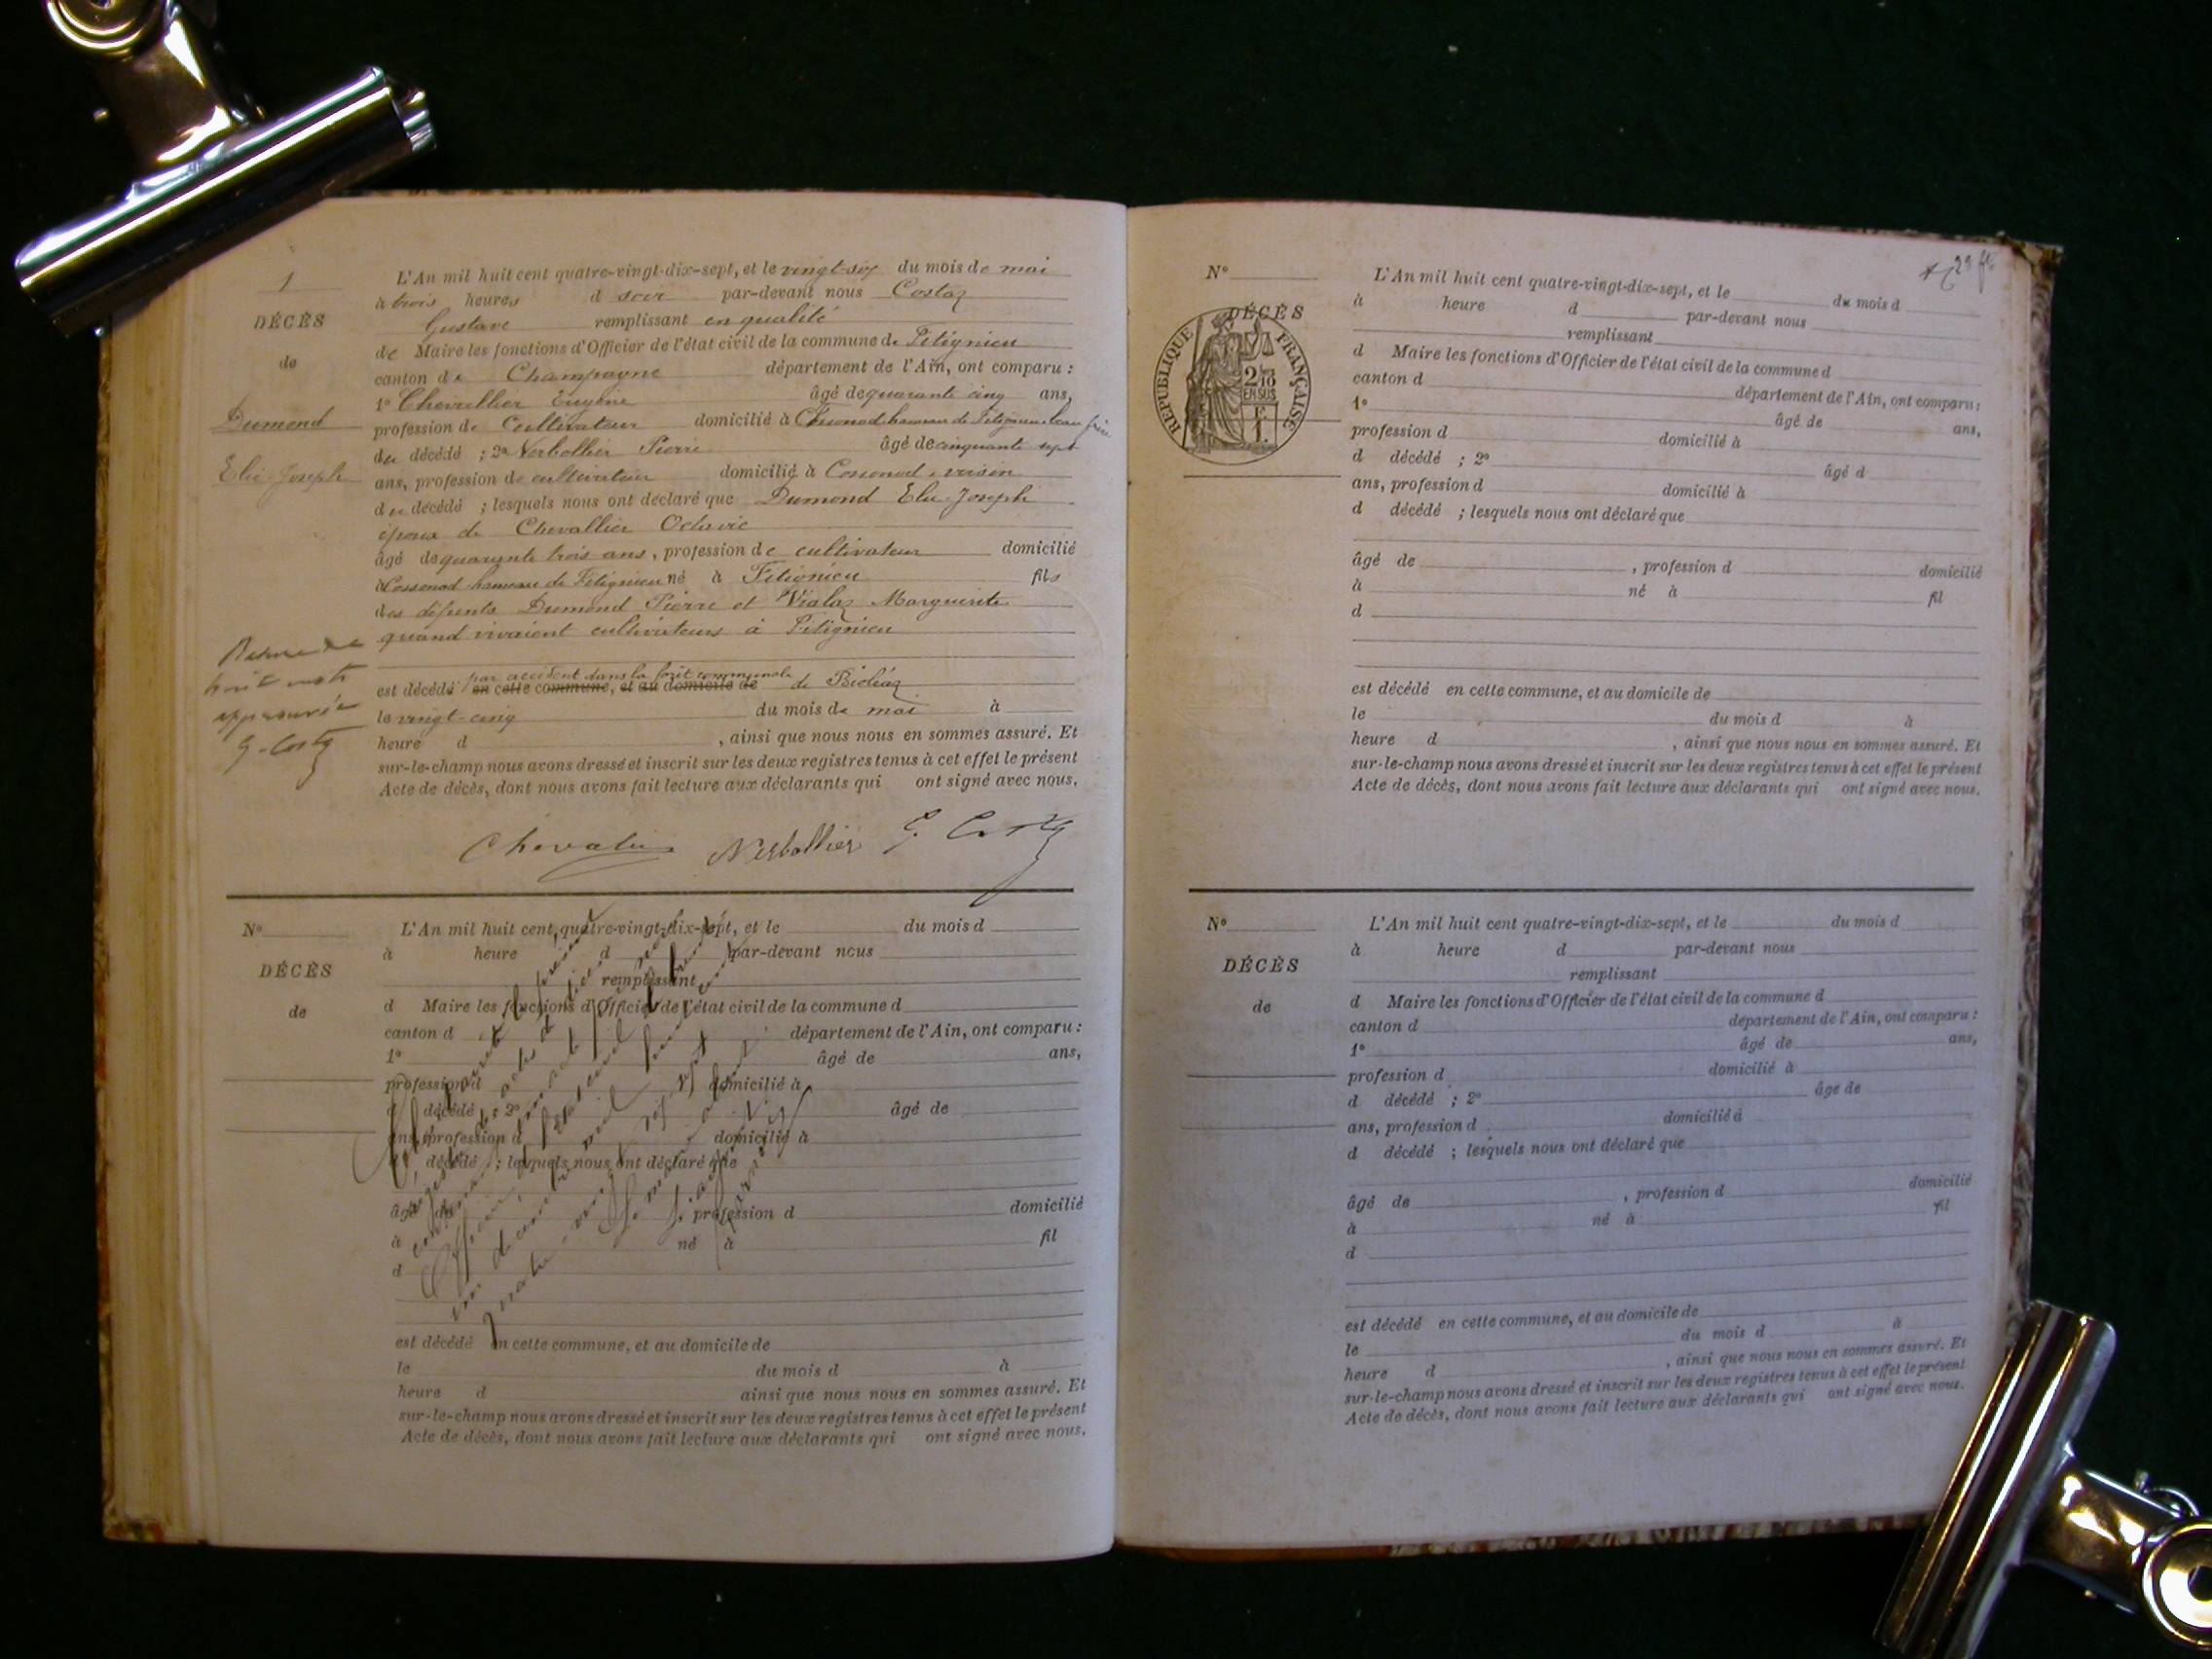 1
DÉCÈS
de
Dumond
Elie Joseph
L'An mil huit cent quatre-vingt-dix-sept, et le vingt-six du mois de mai
à trois heures d soir par-devant nous Costaz
Gustave remplissant en qualité
de Maire les fonctions d'Officier de l'état civil de la commune de Fitignieu
canton de Champagne département de l'Ain, ont comparu :
1º Chevallier Eugène âgé de quarante cinq ans,
profession de Cultivateur domicilié à hameau de Fitignieu beau frère
du décédé ; 2º Nerbollier Pierre âgé de cinquante sept
ans, profession de cultivateur domicilié à Cossonod, voisin
du décédé ; lesquels nous ont déclaré que Dumond Elie Joseph
époux de Chevallier Octavie
âgé de quarante trois ans, profession de cultivateur domicilié
à Cossonod hameau de Fitignieu né à Fitignieu fils
des défunts Dumond Pierre et Vialaz Marguerite
quand vivaient cultivateurs à Fitignieu
par accident dans la forêt communale
est décédé en cette commune, et au domicile de de Bioléaz
le vingt-cinq du mois de mai à
heure d , ainsi que nous nous en sommes assuré. Et
sur-le-champ nous avons dressé et inscrit sur les deux registres tenus à cet effet le présent
Acte de décès, dont nous avons fait lecture aux déclarants qui ont signé avec nous.
huit mots
approuvée
G. Costaz
Chevalier Nerbollier G. Costaz
Nº
DÉCÈS
de
L'An mil huit cent quatre-vingt-dix-sept, et le du mois d
à heure d par-devant nous
remplissant
d Maire les fonctions d'Officier de l'état civil de la commune d
canton d département de l'Ain, ont comparu :
1º âgé de ans,
profession d domicilié à
d décédé ; 2º âgé de
ans, profession d domicilié à
d décédé ; lesquels nous ont déclaré que
âgé de , profession d domicilié
à né à fil
d
est décédé en cette commune, et au domicile de
le du mois d à
heure d ainsi que nous nous en sommes assuré. Et
sur-le-champ nous avons dressé et inscrit sur les deux registres tenus à cet effet le présent
Acte de décès, dont nous avons fait lecture aux déclarants qui ont signé avec nous.
Nº
DÉCÈS
RÉPUBLIQUE FRANÇAISE
2/10
EN SUS
F
1
L'An mil huit cent quatre-vingt-dix-sept, et le du mois d
à heure d par-devant nous
remplissant
d Maire les fonctions d'Officier de l'état civil de la commune d
canton d département de l'Ain, ont comparu :
1º âgé de ans,
profession d domicilié à
d décédé ; 2º âgé d
ans, profession d domicilié à
d décédé ; lesquels nous ont déclaré que
âgé de , profession d domicilié
à né à fil
d
est décédé en cette commune, et au domicile de
le du mois d à
heure d , ainsi que nous nous en sommes assuré. Et
sur-le-champ nous avons dressé et inscrit sur les deux registres tenus à cet effet le présent
Acte de décès, dont nous avons fait lecture aux déclarants qui ont signé avec nous.
Nº
DÉCÈS
de
L'An mil huit cent quatre-vingt-dix-sept, et le du mois d
à heure d par-devant nous
remplissant
d Maire les fonctions d'Officier de l'état civil de la commune d
canton d département de l'Ain, ont comparu :
1º âgé de ans,
profession d domicilié à
d décédé ; 2º âge de
ans, profession d domicilié à
d décédé ; lesquels nous ont déclaré que
âgé de , profession d domicilié
à né à fil
d
est décédé en cette commune, et au domicile de
le du mois d à
heure d , ainsi que nous nous en sommes assuré. Et
sur-le-champ nous avons dressé et inscrit sur les deux registres tenus à cet effet le présent
Acte de décès, dont nous avons fait lecture aux déclarants qui ont signé avec nous.